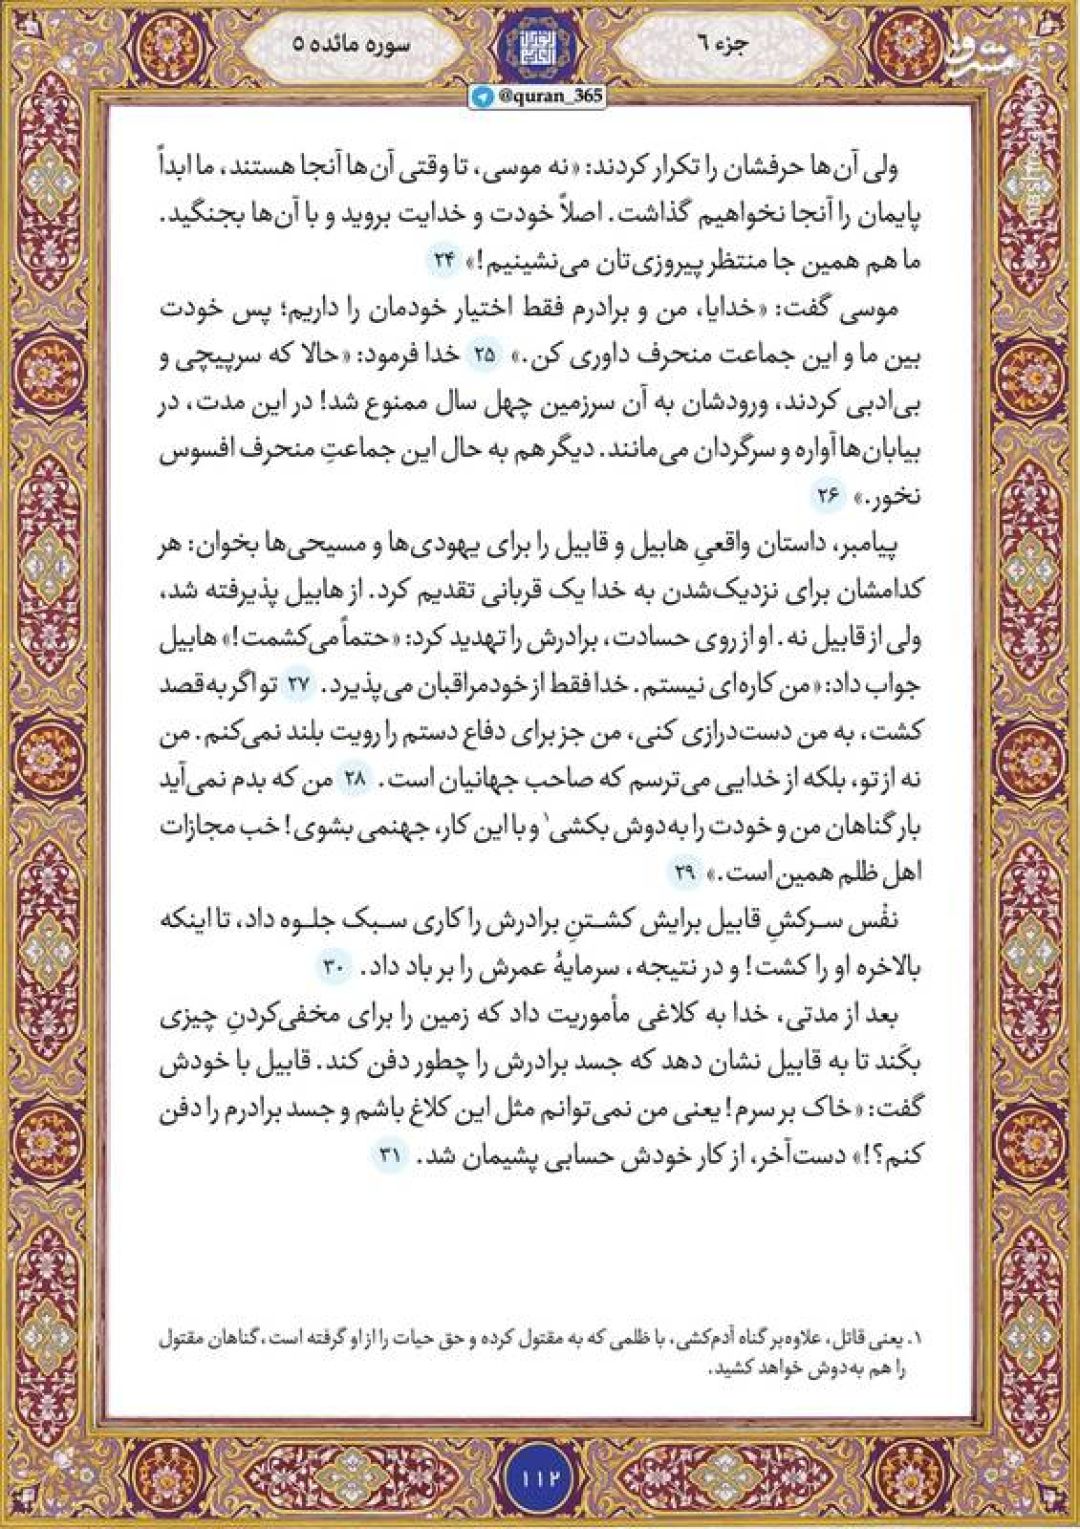 جزء ۶
سوره مائده ۵
مشرق
mashreghnews.ir
@quran_365
ولی آن‌ها حرفشان را تکرار کردند: «نه موسی، تا وقتی آن‌ها آنجا هستند، ما ابداً
پایمان را آنجا نخواهیم گذاشت. اصلاً خودت و خدایت بروید و با آن‌ها بجنگید.
ما هم همین جا منتظر پیروزی‌تان می‌نشینیم!» ۲۴
موسی گفت: «خدایا، من و برادرم فقط اختیار خودمان را داریم؛ پس خودت
بین ما و این جماعت منحرف داوری کن.» ۲۵ خدا فرمود: «حالا که سرپیچی و
بی‌ادبی کردند، ورودشان به آن سرزمین چهل سال ممنوع شد! در این مدت، در
بیابان‌ها آواره و سرگردان می‌مانند. دیگر هم به حال این جماعتِ منحرف افسوس
نخور.» ۲۶
پیامبر، داستان واقعیِ هابیل و قابیل را برای یهودی‌ها و مسیحی‌ها بخوان: هر
کدامشان برای نزدیک‌شدن به خدا یک قربانی تقدیم کرد. از هابیل پذیرفته شد،
ولی از قابیل نه. او از روی حسادت، برادرش را تهدید کرد: «حتماً می‌کشمت!» هابیل
جواب داد: «من کاره‌ای نیستم. خدا فقط از خودمراقبان می‌پذیرد. ۲۷ تو اگر به‌قصد
کشت، به من دست‌درازی کنی، من جز برای دفاع دستم را رویت بلند نمی‌کنم. من
نه از تو، بلکه از خدایی می‌ترسم که صاحب جهانیان است. ۲۸ من که بدم نمی‌آید
بار گناهان من و خودت را به‌دوش بکشی۱ و با این کار، جهنمی بشوی! خب مجازات
اهل ظلم همین است.» ۲۹
نفْس سرکشِ قابیل برایش کشتنِ برادرش را کاری سبک جلوه داد، تا اینکه
بالاخره او را کشت! و در نتیجه، سرمایهٔ عمرش را بر باد داد. ۳۰
بعد از مدتی، خدا به کلاغی مأموریت داد که زمین را برای مخفی‌کردنِ چیزی
بکَند تا به قابیل نشان دهد که جسد برادرش را چطور دفن کند. قابیل با خودش
گفت: «خاک بر سرم! یعنی من نمی‌توانم مثل این کلاغ باشم و جسد برادرم را دفن
کنم؟!» دست‌آخر، از کار خودش حسابی پشیمان شد. ۳۱
۱. یعنی قاتل، علاوه‌بر گناه آدم‌کشی، با ظلمی که به مقتول کرده و حق حیات را از او گرفته است، گناهان مقتول
را هم به‌دوش خواهد کشید.
۱۱۲